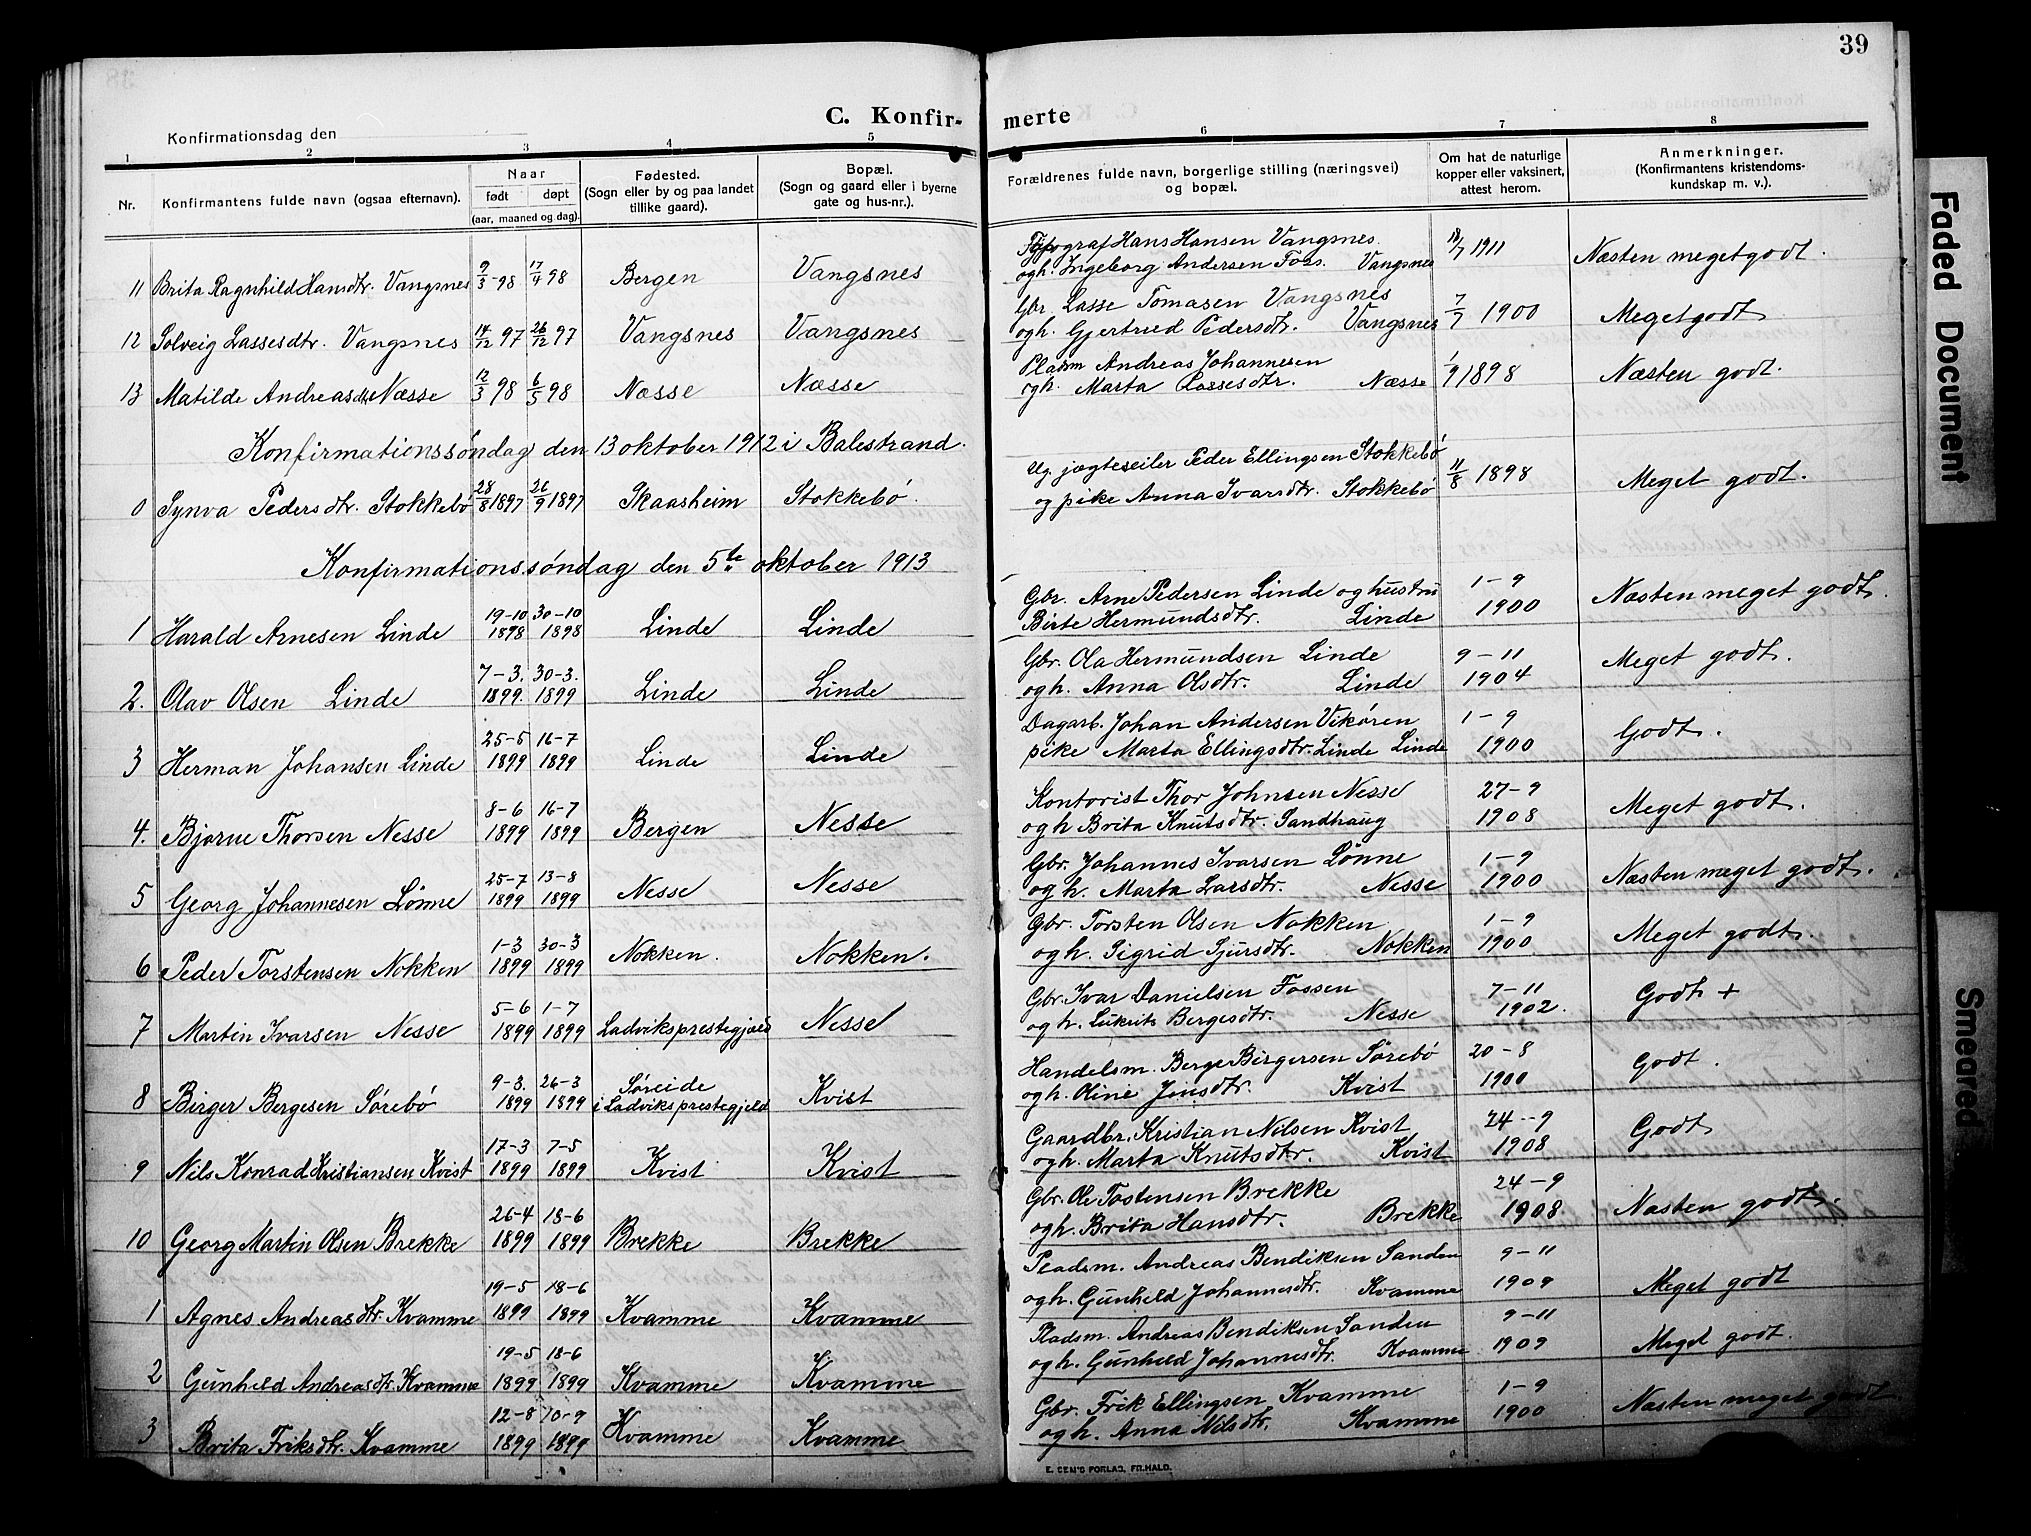 39
C. Konfir-
merte
Konfirmationsdag den
1 2 3 4 5 6 7 8
Nr.
Konfirmantens fulde navn (ogsaa efternavn).
Naar
født døpt
(aar, maaned og dag).
Fødested.
(Sogn eller by og paa landet
tillike gaard).
Bopæl.
(Sogn og gaard eller i byerne
gate og hus-nr.).
Forældrenes fulde navn, borgerlige stilling (næringsvei)
og bopæl.
Om hat de naturlige
kopper eller vaksinert,
attest herom.
Anmerkninger.
(Konfirmantens kristendoms-
kundskap m. v.).
11 Brita Ragnhild Hansdtr. Vangsnes 9/3-98 17/4 98 Bergen Vangsnes
Typograf Hans Hansen Vangsnes
ogh. Ingeborg Andersen Foss. Vangsnes 18/7 1911 Næsten megetgodt.
12 Solveig Lassesdtr. Vangsnes 14/12 97 26/12 97 Vangsnes Vangsnes
Gbr. Lasse Tomasen Vangsnes
ogh. Gjertried Pedersdtr. Vangsnes 7/7 1900 Megetgodt
13 Matilde Andreasdtr Næsse 12/3 98 6/5 98 Næsse Næsse
Pladsm Andreas Johannesen
ogh. Marta Lassesdtr. Næsse 1/9 1898 Næsten godt.
Konfirmationssøndag den 13 oktober 1912 i Balestrand.
0 Synva Pedersdtr. Stokkebø 28/8 1897 26/9 1897 Skaasheim Stokkebø.
Ug. jægteseiler Peder Ellingsen Stokkebø
og pike Anna Ivarsdtr. Stokkebø 11/8 1898 Meget godt.
Konfirmationssøndag den 5te oktober 1913
1 Harald Arnesen Linde 19-10 1898 30-10 1898 Linde Linde
Gbr. Arne Pedersen Linde og hustru
Birte Hermundsdtr. Linde 1-9 1900 Næsten meget godt.
2. Olav Olsen Linde 7-3. 1899. 30-3. 1899 Linde Linde
Gbr. Ola Hermundsen Linde
ogh. Anna Olsdtr. Linde 9-11 1904 Meget godt.
3 Herman Johansen Linde 25-5 1899 16-7 1899 Linde Linde
Dagarb. Johan Andersen Vikøren
pike Marta Ellingsdtr. Linde Linde 1-9 1900 Godt.
4. Bjarne Thorsen Nesse 8-6 1899 16-7 1899 Bergen Nesse
Kontorist Thor Johnsen Nesse
ogh Brita Knutsdtr. Sandhaug 27-9 1908 Meget godt.
5 Georg Johannesen Lønne 25-7 1899 13-8 1899 Nesse Nesse
Gbr. Johannes Ivarsen Lønne
ogh. Marta Larsdtr. Nesse 1-9 1900 Næsten meget godt.
6 Peder Torstensen Nokken 1-3 1899 30-3 1899 Nokken. Nokken.
Gbr. Torsten Olsen Nokken
ogh. Sigrid Sjursdtr. Nokken 1-9 1900 Meget godt.
7 Martin Ivarsen Nesse 5-6 1899 1-7 1899 Ladviksprestegjæld Nesse
Gbr. Ivar Danielsen Fossen
ogh. Lukrits Bergesdtr. Nesse 7-11 1902. Godt +
8 Birger Bergesen Sørebø 9-3. 1899 26-3 1899 Søreide
i Ladviksprestegjeld Kvist
Handelsm. Berge Birgersen Sørebø
ogh. Oline Jensdtr. Kvist 20-8 1900 Godt.
9 Nils Konrad Kristiansen Kvist 17-3 1899 7-5 1899 Kvist Kvist
Gaardbr. Kristian Nilsen Kvist
ogh. Marta Knutsdtr. Kvist 24-9 1908 Godt
10 Georg Martin Olsen Brekke 26-4 1899 18-6 1899 Brekke Brekke
Gbr. Ole Tostensen Brekke
ogh. Brita Hansdtr. Brekke 24-9 1908 Næsten godt.
1 Agnes Andreasdtr. Kvamme 19-5 1899 18-6 1899 Kvamme Kvamme
Pladsm. Andreas Bendiksen Sanden
ogh. Gunheld Johannesdtr. Kvamme 9-11 1909 Meget godt
2 Gunheld Andreasdtr. Kvamme 19-5 1899 18-6 1899 Kvamme Kvamme
Pladsm. Andreas Bendiksen Sanden
ogh. Gunheld Johannesdtr. Kvamme 9-11 1909 Meget godt.
3 Brita Friksdtr. Kvamme 12-8 1899 10-9 1899 Kvamme Kvamme
Gbr. Frik Ellingsen Kvamme
ogh. Anna Nilsdtr. Kvamme 1-9 1900 Næsten meget godt
E. SEM'S FORLAG, FR.HALD.
Faded Document
Smeared